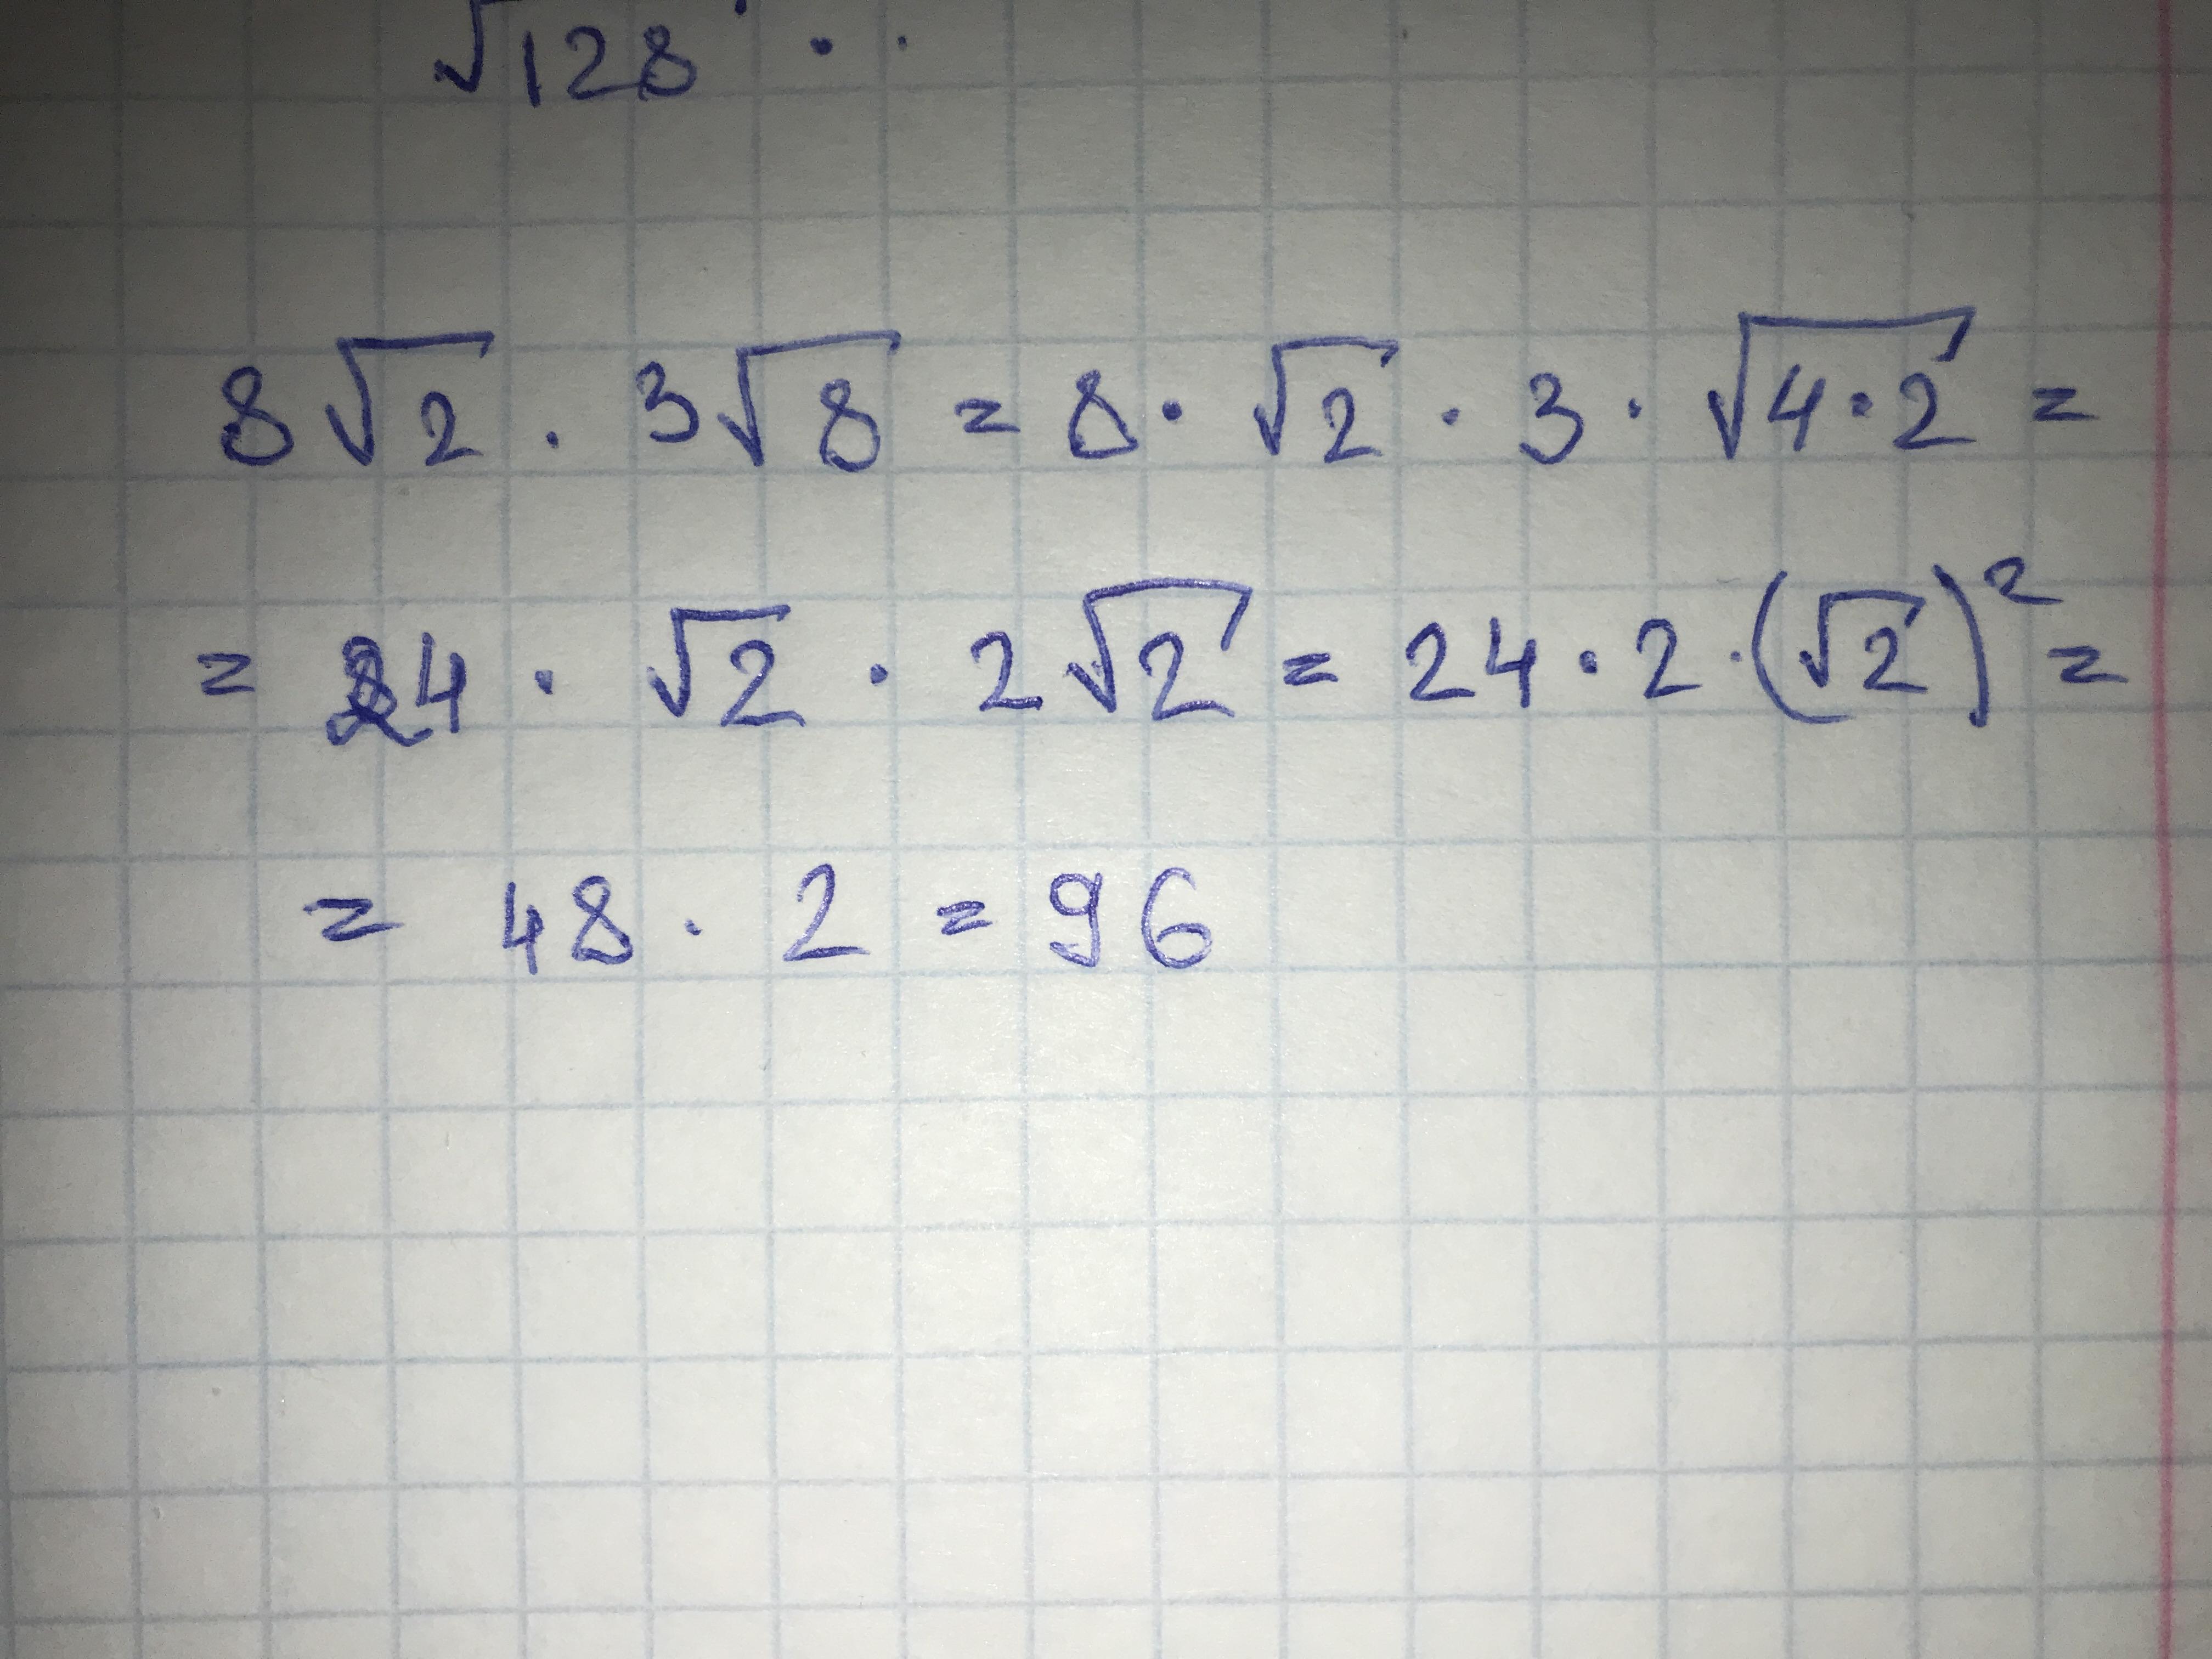 √128 · ·
8√2 · 3√8 = 8 · √2 · 3 · √4·2 =
= 24 · √2 · 2√2 = 24 · 2 · (√2)² =
= 48 · 2 = 96